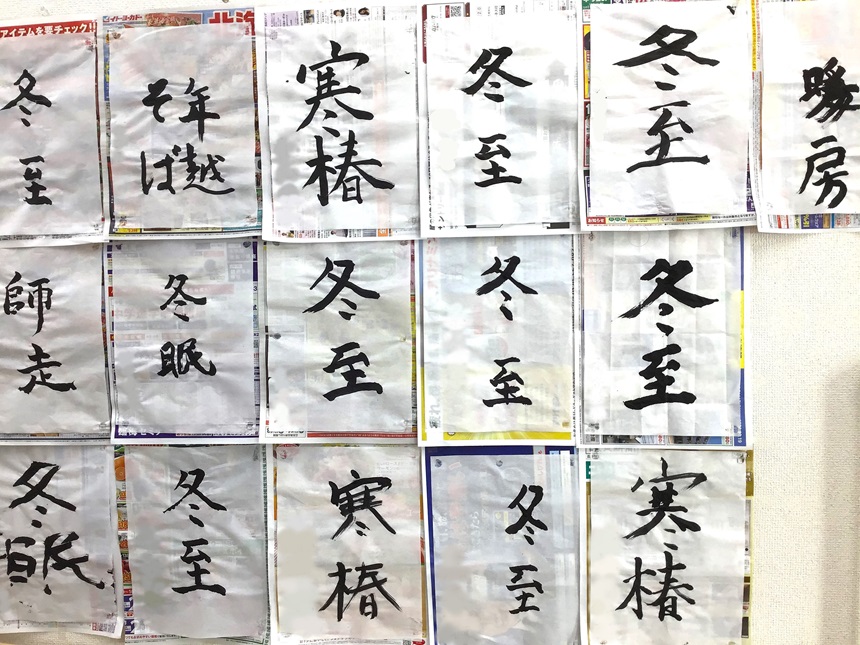 アイテムを要チェック!!
イトーヨーカドー
冬至
年越
そば
寒椿
冬至
冬至
暖房
師走
冬眠
冬至
冬至
冬至
冬眠
冬至
寒椿
冬至
寒椿